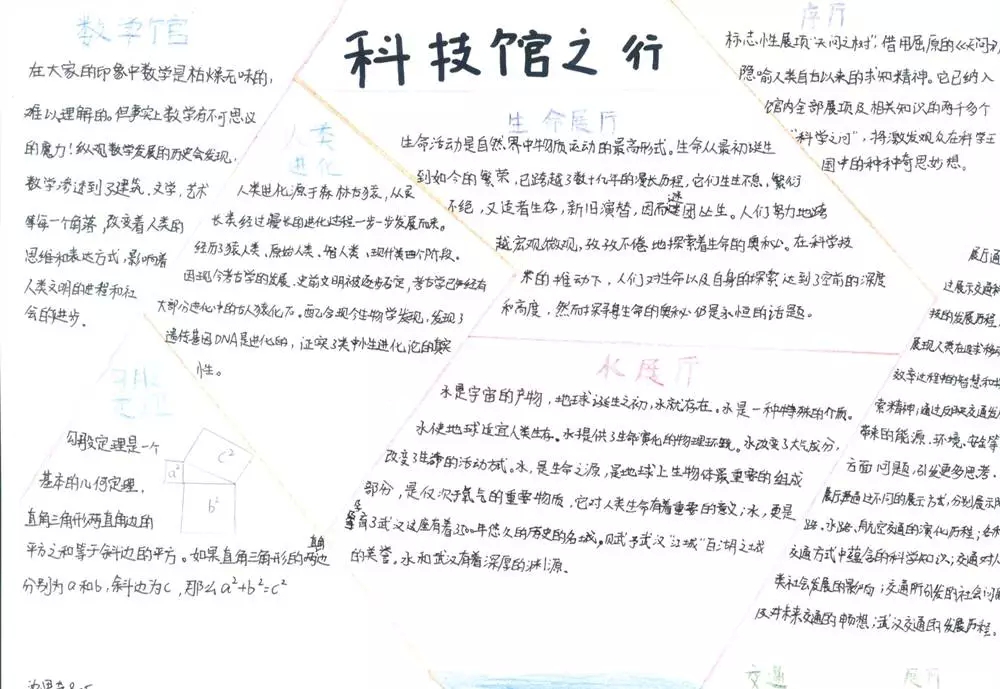 科技馆之行
数学馆
在大家的印象中数学是枯燥无味的,
难以理解的。但事实上数学有不可思议
的魔力!纵观数学发展的历史会发现,
数学渗透到了建筑、文学、艺术
等每一个角落,改变着人类的
思维和表达方式,影响着
人类文明的进程和社
会的进步。
人类
进化
人类进化源于森林古猿,从灵
长类经过漫长的进化过程一步一步发展而来。
经历了猿人类、原始人类、智人类、现代类四个阶段。
因现今考古学的发展,史前文明被逐步否定,考古学已经有
大部分进化中的古人猿化石。配合现今生物学发现,发现了
遗传基因DNA是进化的,证实了类中性进化论的真实
性。
勾股
定理
勾股定理是一个
基本的几何定理,
直角三角形两直角边的
平方之和等于斜边的平方。如果直角三角形的两直角边
分别为a和b,斜边为c,那么a²+b²=c²
a²
c²
b²
生命展厅
生命活动是自然界中物质运动的最高形式。生命从最初诞生
到如今的繁荣,已跨越了数十亿年的漫长历程,它们生生不息,繁衍
不绝,又适者生存,新旧演替,因而谜团丛生。人们努力地跨
越宏观微观,孜孜不倦地探索着生命的奥秘。在科学技
术的推动下,人们对生命以及自身的探索达到了空前的深度
和高度,然而探寻生命的奥秘仍是永恒的话题。
水展厅
水是宇宙的产物,地球诞生之初,水就存在。水是一种特殊的介质。
水使地球适宜人类生存。水提供了生命演化的物理环境。水改变了大气成分,
改变了生命的活动方式。水,是生命之源,是地球上生物体最重要的组成
部分,是仅次于氧气的重要物质,它对人类生命有着重要的意义;水,更是
孕育了武汉这座有着3500年悠久的历史的名城,赋予武汉“江城”百湖之城
的美誉。水和武汉有着深厚的渊源。
序厅
标志性展项“天问之树”,借用屈原的《天问》,
隐喻人类自古以来的求知精神。它已纳入
馆内全部展项及相关知识的两千多个
“科学之问”,将激发观众在科学王
国中的种种奇思妙想。
展厅通
过展示交通科
技的发展历程,
展现人类在追求移动
效率过程中的智慧和探
索精神;通过反映交通发展
带来的能源、环境、安全等
方面问题,引发更多思考。
展厅普通过不同的展示方式,分别展示陆
路、水路、航空交通的演化历程;各种
交通方式中蕴含的科学知识;交通对人
类社会发展的影响;交通所引发的社会问题
及对未来交通的畅想;武汉交通的发展历程。
交通 展厅